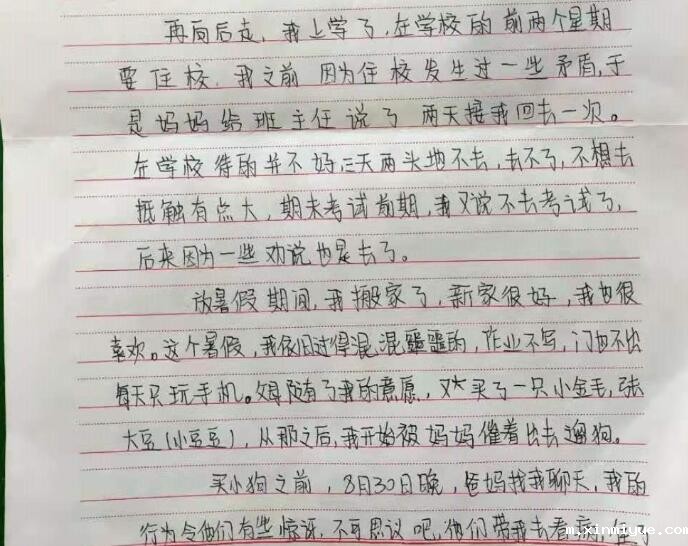 再向后走，我上学了，在学校的前两个星期
要住校，我之前因为住校发生过一些矛盾，于
是妈妈给班主任说了两天接我回去一次。
在学校待的并不好三天两头地不去，去不了，不想去
抵触有点大，期末考试前期，我又说不去考试了，
后来因为一些劝说也是去了。
放暑假期间，我搬家了，新家很好，我也很
喜欢。这个暑假，我依旧过得混混噩噩的，作业不写，门也不出
每天只玩手机。父母随有了我的意愿，又买了一只小金毛，张
大豆(小豆豆)，从那之后，我开始被妈妈催着出去遛狗。
买小狗之前，8月30日晚，爸妈找我聊天，我的
行为令他们有些惊讶，不可思议吧，他们带我去看
m.xinmiyue.com